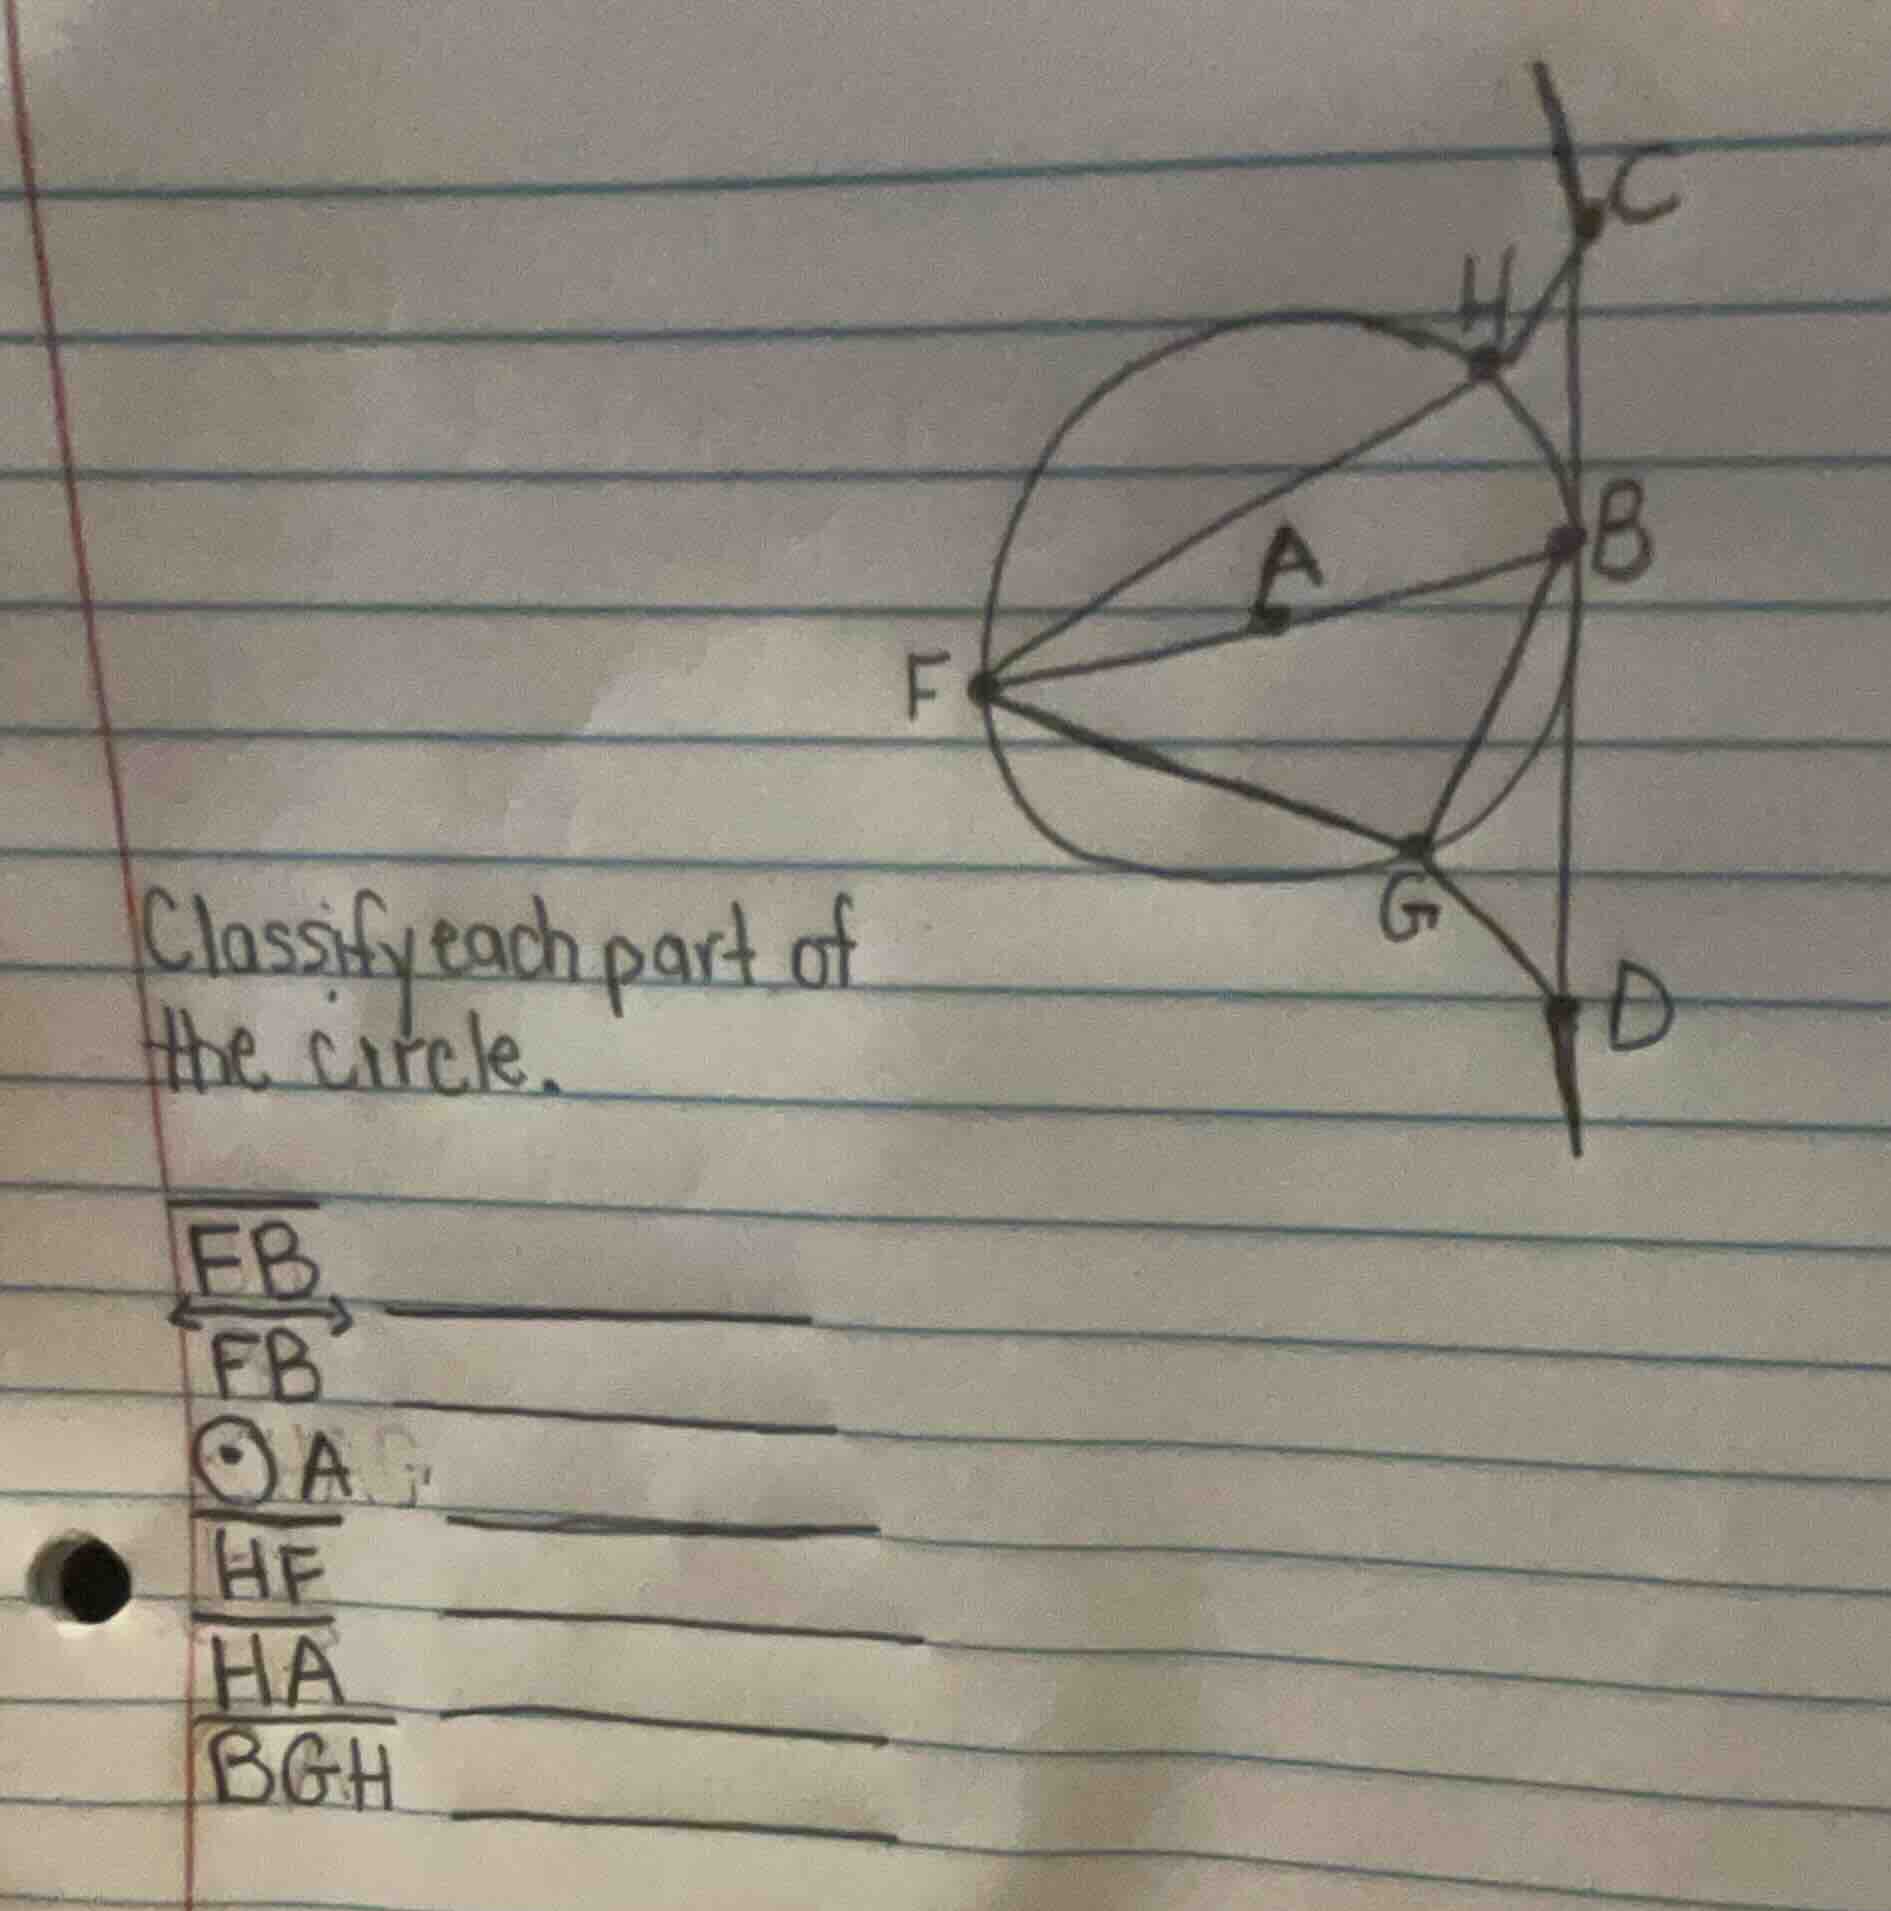 C
H
B
A
F
G
D
Classify each part of
the circle.
FB
FB
⊙A
HF
HA
BGH